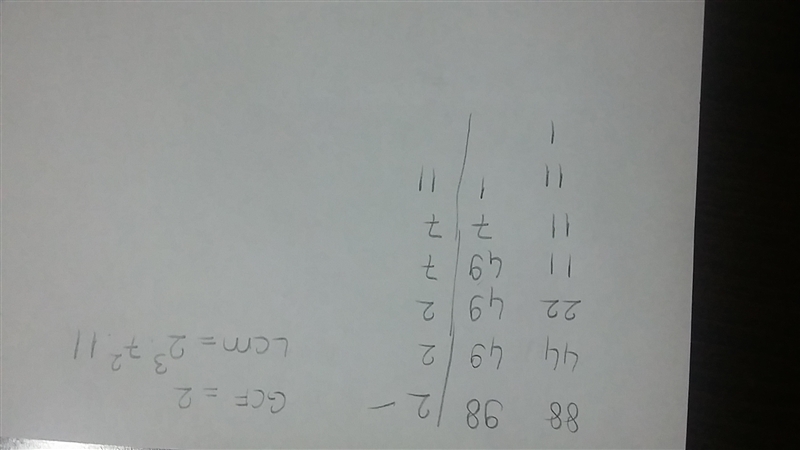 88 98 | 2 – GCF = 2
44 49 | 2 Lcm = 2³ 7² 11
22 49 | 2
11 49 | 7
11 7 | 7
11 1 | 11
1